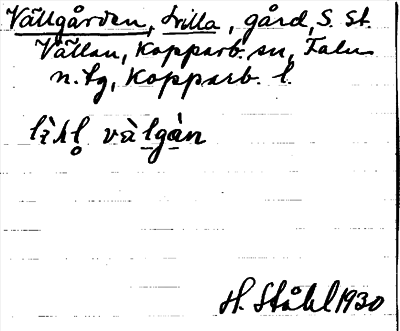 Vällgården, Lilla, gård, S. St.
Vällan, Kopparb. sn, Falu
n. tg, Kopparb. l.
lìḥl̥ vàlgàn
H. Ståhl 1930